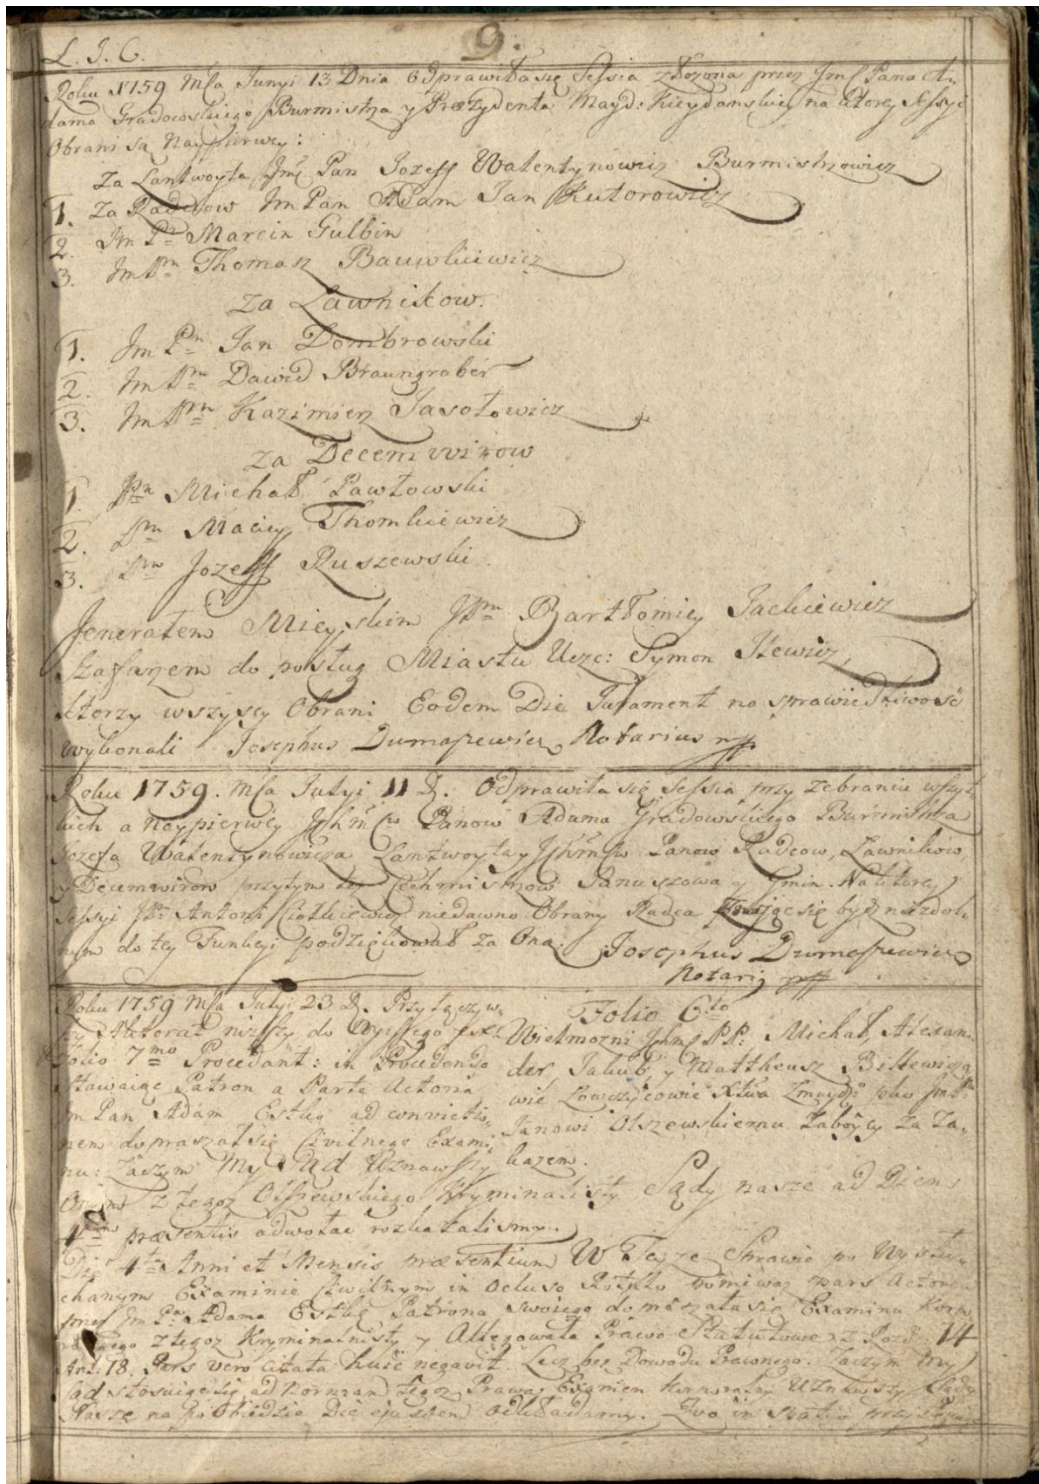 9.
L. J. C.
Roku 1759 Msca Junyi 13 Dnia Odprawiła się Sessia złożona przez Jmś Pana A-
dama Gradowskiego Burmistrza y Prezydenta Mayd: Kieydanskiey na ktorey Sessyi
Obrani są Naypierwey:
Za Lantwoyta Jmć Pan Jozeff Walentynowicz Burmistrzowicz
1. Za Radcow Jm Pan Adam Jan Kutorowicz
2. Jm Pn Marcin Gulbin
3. Jm Pn Thomasz Bauwkiewicz
Za Ławnikow.
1. Jm Pn Jan Dombrowski
2. Jm Pn Dawid Braungraber
3. Jm Pn Kazimierz Jasołowicz
za Decemwirow
1. Pn Michał Pawłowski
2. Pn Maciey Thomkiewicz
3. Pn Jozeff Ruszewski
Jenerałem Mieyskim JPn Bartłomiey Jackiewicz
Szafarzem do posług Miastu Ucze: Symon Ilewicz,
ktorzy wszyscy Obrani Eodem Die Jurament na sprawiedliwość
wykonali Josephus Dumaszewicz Notarius mp
Roku 1759. Msca Julyi 11 D. Odprawiła się Sessia przy zebraniu wszyt-
kich a naypierwey Panow Adama Gradowskiego Burmistrza
Jozefa Walentynowicza Lantwoyta y Panow Radcow, Ławnikow,
y Decemwirow przytym też Cechmistrzow Januszowa y Gmin. Na ktorey
Sessyi JPn Antoni niedawno Obrany Radca się bydź niezdol-
nym do tey Funkcyi podziękował za Oną. Josephus Dumaszewicz
Notariq mp
Roku 1759 Msca Julyi 23 D. Przyłączyw-
szy Aktorat niższy do Wyższego
Folio 7mo Procedant: in Procedendo
stawaiąc Patron a Parte Actorea
Jm Pan Adam Estko ad convictio-
nem dopraszał się Civilnego Exami-
nu: Zaczym My Sąd Uznawszy
Folio 6to
Wielmożni PP: Michał, Alexan-
der Jakub y Mattheusz Billewicze
wie Łowczycowie Xtwa Zmuydz:
Janowi Olszewskiemu Zaboycy za Za-
kazem.
z tegoż Olszewskiego Kryminalisty Sądy nasze ad Diem
4tam præsentis adwołać rozkazalismy.
Die 4ta Anni et Mensis præsentium W Teyze Sprawie po Wysłu-
chanym Examinie Ciwilnym in pars Actorea
przez Jm Pa Adama Estkę Patrona swoiego domaszała się Examinu Korpo-
ralnego z tegoz Kryminalisty y Allegowała Prawo Statutowe z Rozd: 14
Art: 18. Pars vero Citata huic negavit Lecz bez Dowodu Prawnego. Zaczym My
Sąd stosuiąc się ad normam tegoz Prawa, Examen Korporalny Uznawszy Sądy
Nasze na po Obiedzie Die ejusdem odkładamy.